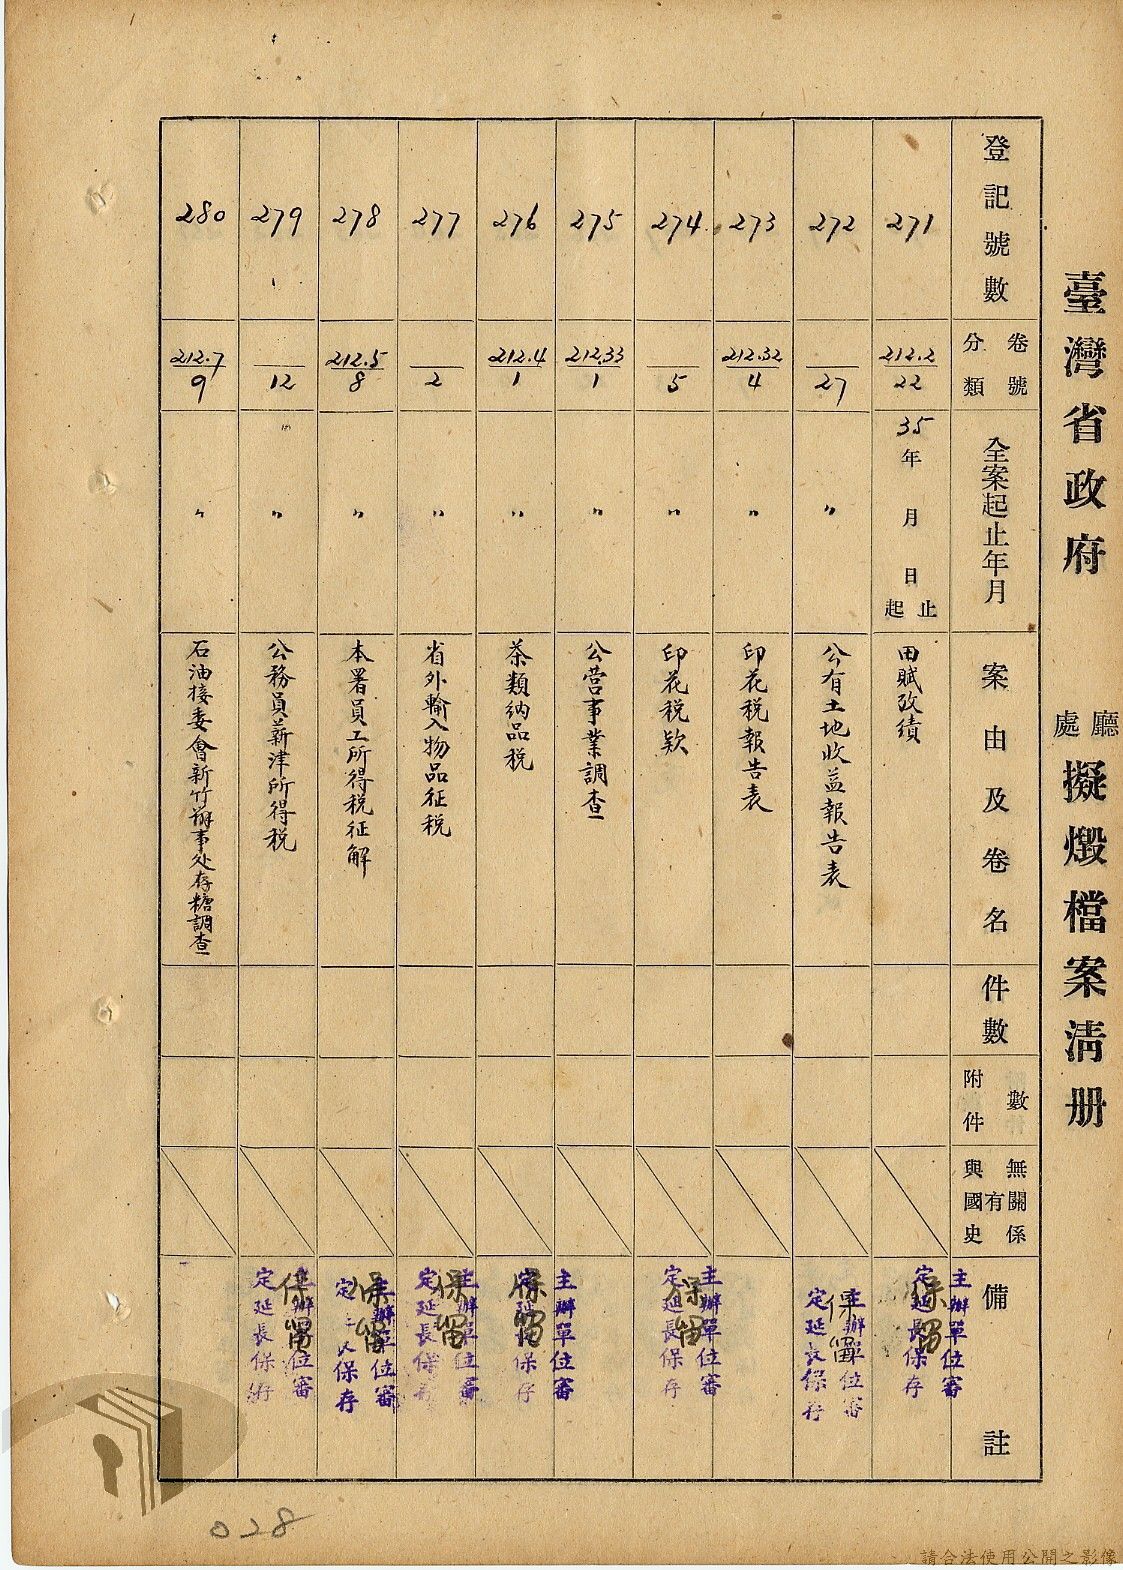 臺灣省政府 廳處 擬燬檔案清册
登記號數
分類 卷號
全案起止年月
案由及卷名
件數
附件數
與國史有無關係
備註
271
212.2
22
35年 月 日起止
田賦改績
主辦單位審定延長保存
保留
272
27
〃
公有土地收益報告表
主辦單位審定延長保存
保留
273
212.32
4
〃
印花税報告表
274
5
〃
印花税欵
主辦單位審定延長保存
保留
275
212.33
1
〃
公营事業調查
276
212.4
1
〃
茶類納品税
主辦單位審定延長保存
保留
277
2
〃
省外輸入物品征税
主辦單位審定延長保存
保留
278
212.5
8
〃
本署員工所得税征解
主辦單位審定延長保存
保留
279
12
〃
公務員薪津所得税
主辦單位審定延長保存
保留
280
212.7
9
〃
石油接委會新竹辦事处存糖調查
028
請合法使用公開之影像